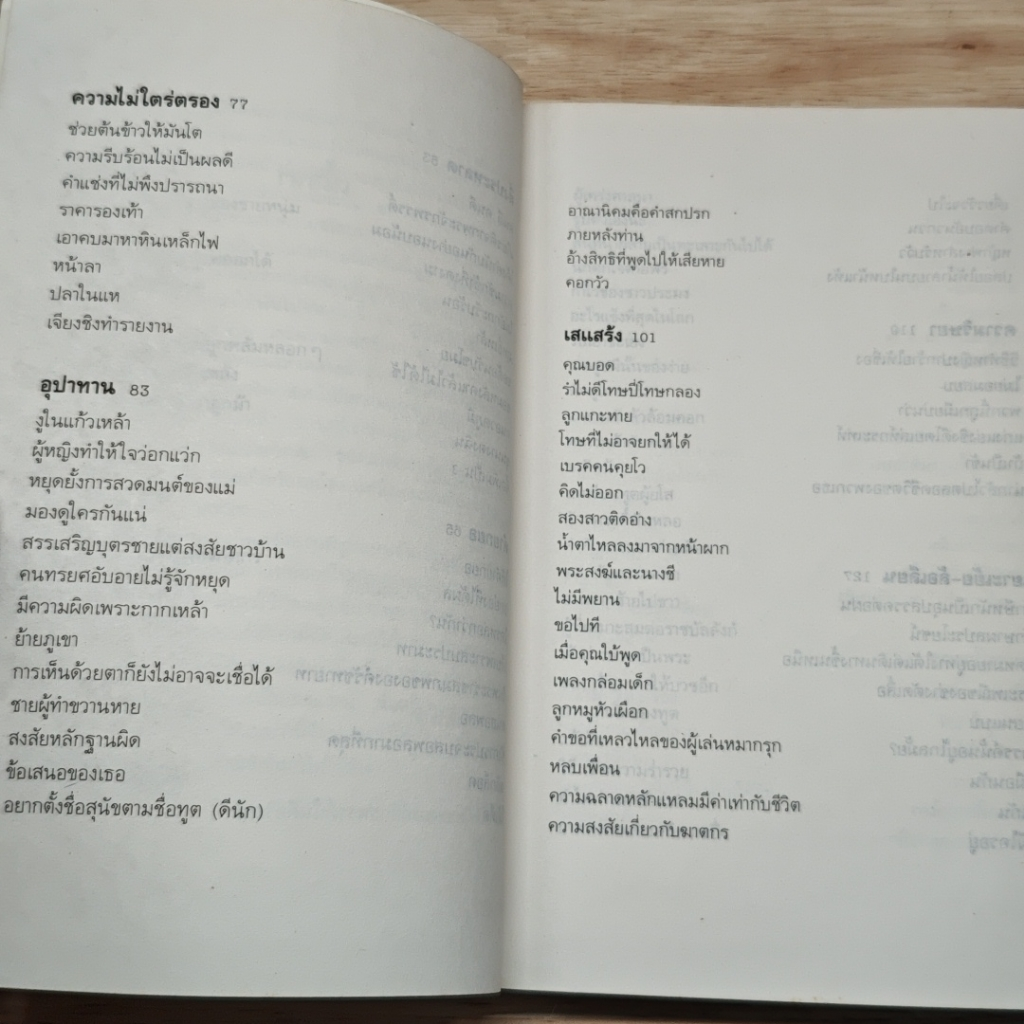 ความไม่ใตร่ตรอง 77
ช่วยต้นข้าวให้มันโต
ความรีบร้อนไม่เป็นผลดี
คำแช่งที่ไม่พึงปรารถนา
ราคารองเท้า
เอาคบมาหาหินเหล็กไฟ
หน้าลา
ปลาในแห
เจียงชิงทำรายงาน
อุปาทาน 83
งูในแก้วเหล้า
ผู้หญิงทำให้ใจว่อกแว่ก
หยุดยั้งการสวดมนต์ของแม่
มองดูใครกันแน่
สรรเสริญบุตรชายแต่สงสัยชาวบ้าน
คนทรยศอับอายไม่รู้จักหยุด
มีความผิดเพราะกากเหล้า
ย้ายภูเขา
การเห็นด้วยตาก็ยังไม่อาจจะเชื่อได้
ชายผู้ทำขวานหาย
สงสัยหลักฐานผิด
ข้อเสนอของเธอ
อยากตั้งชื่อสุนัขตามชื่อทูต (ดีนัก)
อาณานิคมคือคำสกปรก
ภายหลังท่าน
อ้างสิทธิที่พูดไปให้เสียหาย
คอกวัว
เสแสร้ง 101
คุณบอด
รำไม่ดีโทษปี่โทษกลอง
ลูกแกะหาย
โทษที่ไม่อาจยกให้ได้
เบรคคนคุยโว
คิดไม่ออก
สองสาวติดอ่าง
น้ำตาไหลลงมาจากหน้าผาก
พระสงฆ์และนางชี
ไม่มีพยาน
ขอไปที
เมื่อคุณใบ้พูด
เพลงกล่อมเด็ก
ลูกหมูหัวเผือก
คำขอที่เหลวไหลของผู้เล่นหมากรุก
หลบเพื่อน
ความฉลาดหลักแหลมมีค่าเท่ากับชีวิต
ความสงสัยเกี่ยวกับฆาตกร